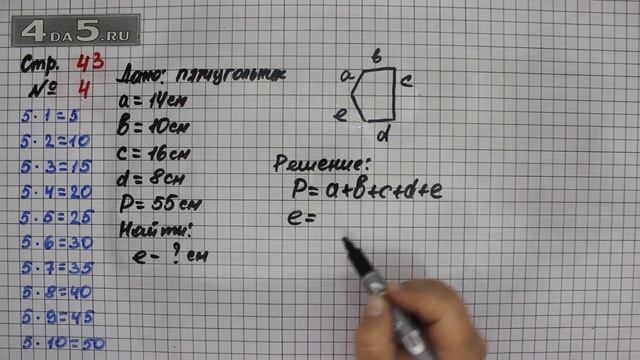 4DA5.RU
Стр. 43
№ 4
5·1=5
5·2=10
5·3=15
5·4=20
5·5=25
5·6=30
5·7=35
5·8=40
5·9=45
5·10=50
Дано: пятиугольник
a=14см
b=10см
c=16см
d=8см
P=55см
Найти:
e-? см
a
b
c
d
e
Решение:
P=a+b+c+d+e
e=